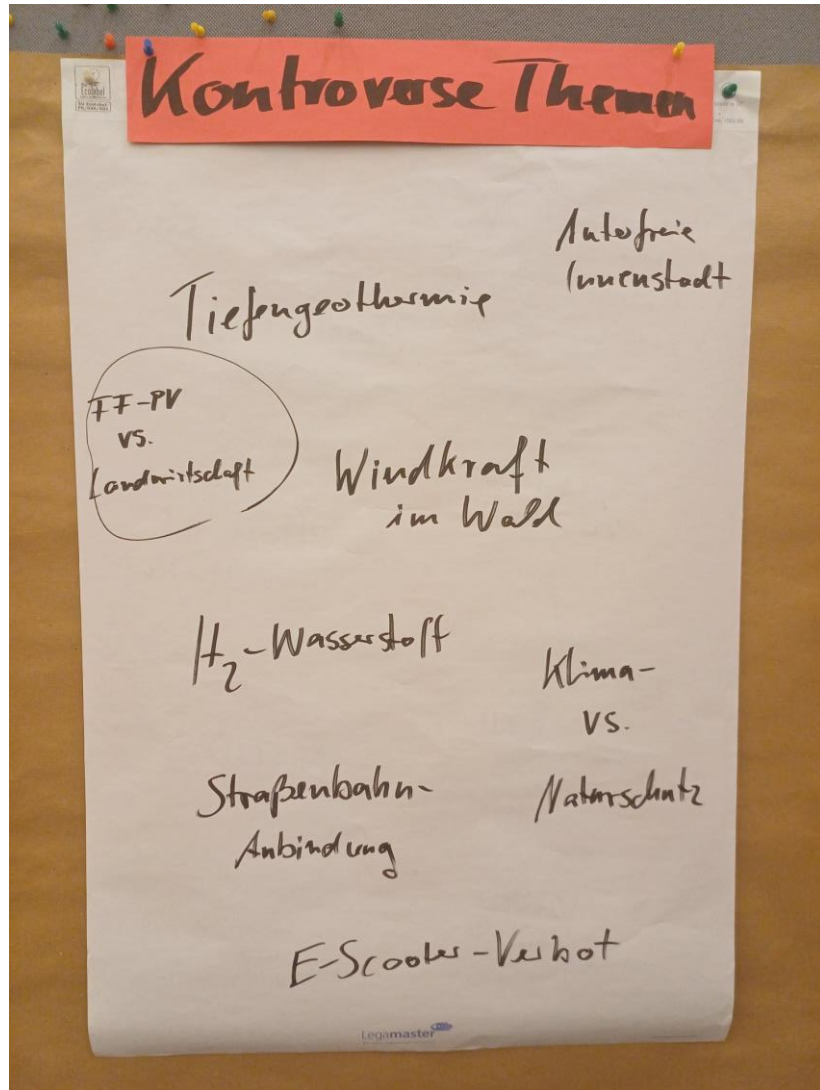 Kontroverse Themen
Autofreie
Innenstadt
Tiefengeothermie
FF-PV
vs.
Landwirtschaft
Windkraft
im Wald
H₂-Wasserstoff
Klima-
vs.
Naturschutz
Straßenbahn-
Anbindung
E-Scooter-Verbot
Legamaster